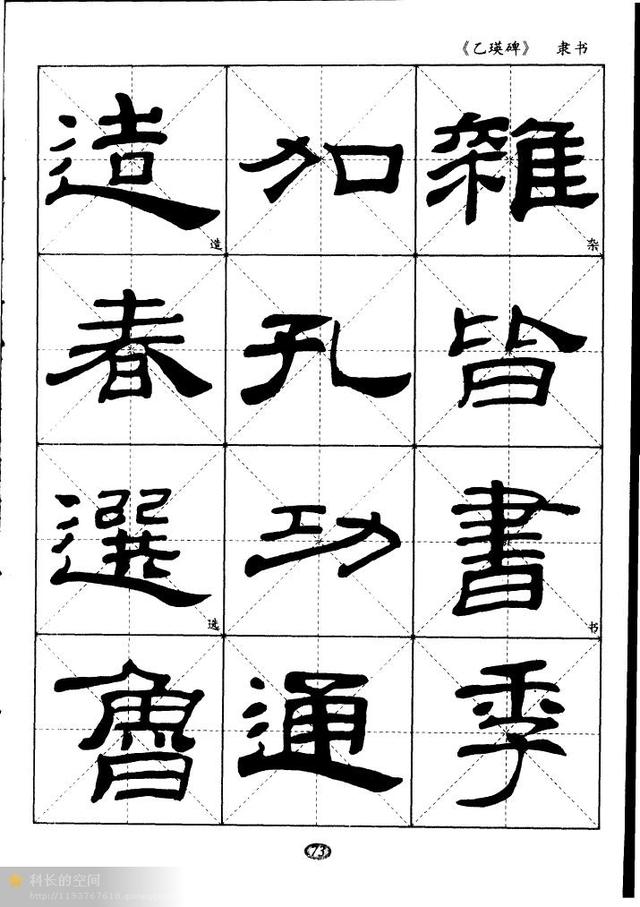 《乙瑛碑》 隶书
造 加 雜
造 杂
春 孔 皆
選 功 書
选 书
魯 通 季
73
科长的空间